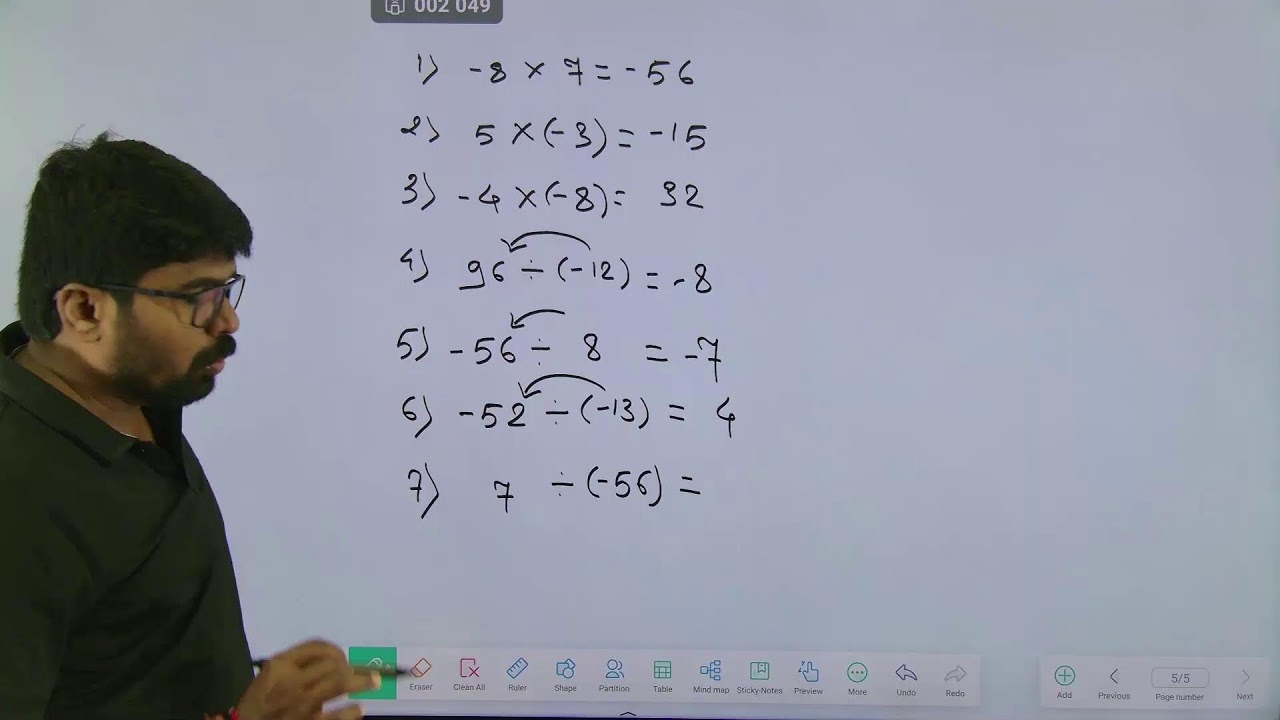 002 049
1) -8 × 7 = -56
2) 5 × (-3) = -15
3) -4 × (-8) = 32
4) 96 ÷ (-12) = -8
5) -56 ÷ 8 = -7
6) -52 ÷ (-13) = 4
7) 7 ÷ (-56) =
Eraser Clean All Ruler Shape Partition Table Mind map Sticky-Notes Preview More Undo Redo
Add Previous 5/5 Page number Next